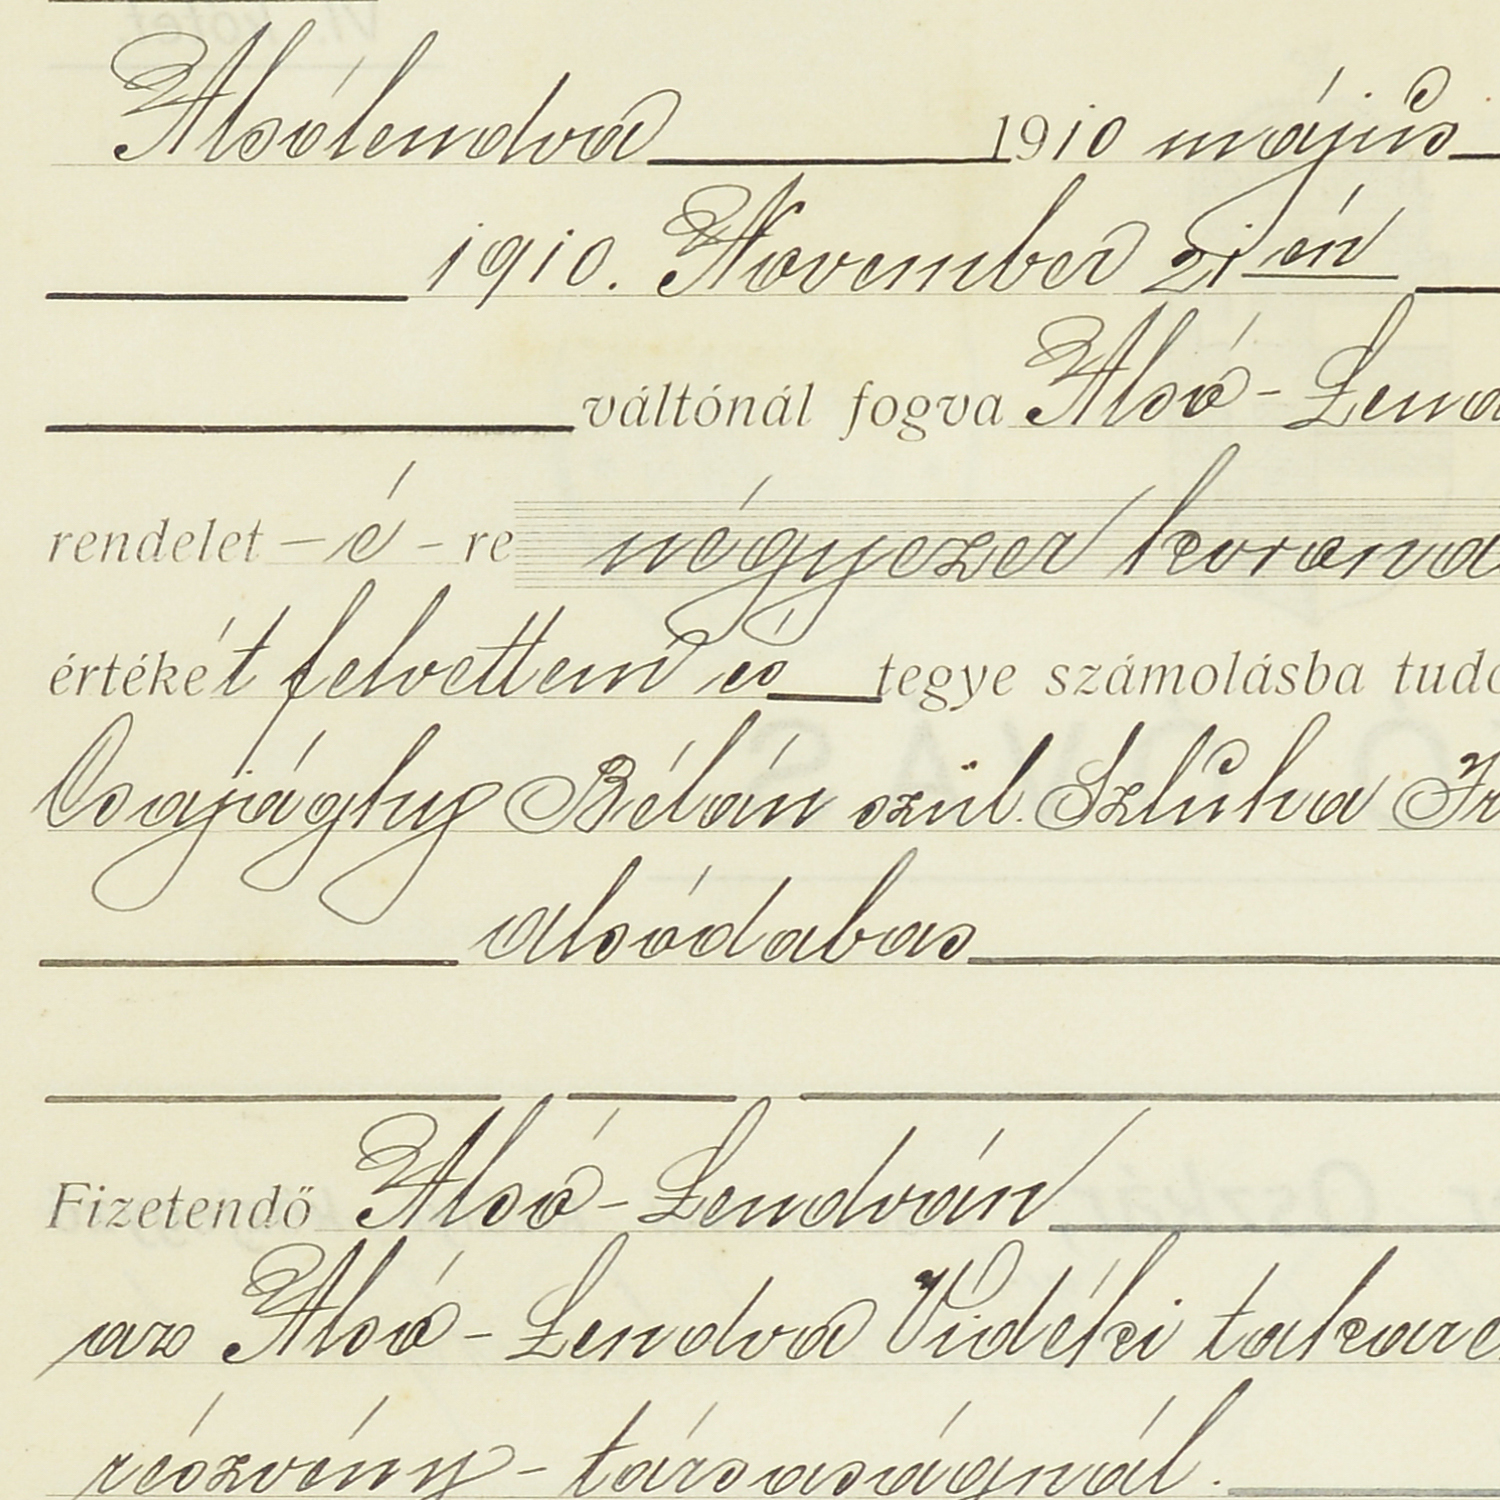 Alsólendva 1910 május
1910. November 21 én
váltónál fogva Alsó-Lend
rendelet - é - re négyezer korona
értékét felvettem és tegye számolásba tudó
Csajághy Bélán szül. Szluha Fr
alsódabas
Fizetendő Alsó-Lendván
az Alsó-Lendva Vidéki takaré
részvény-társaságnál.